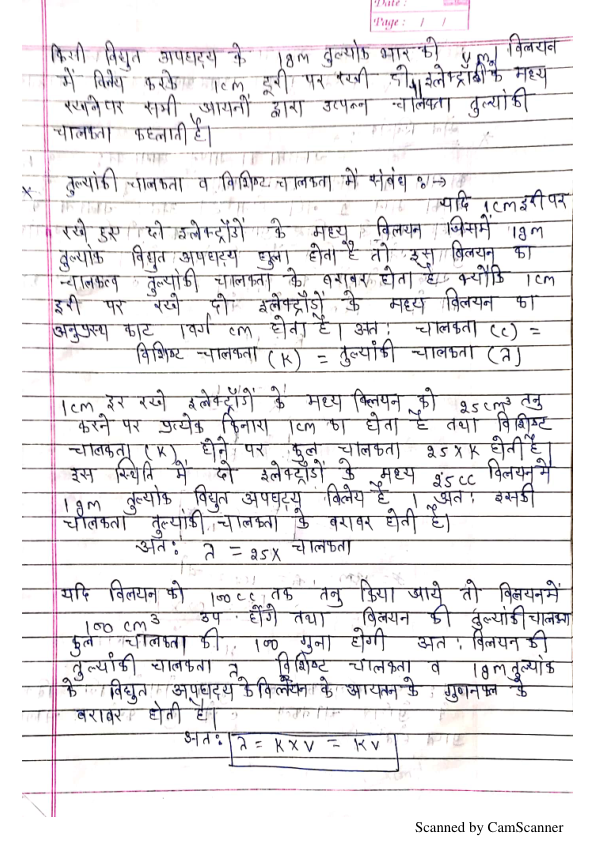 Date :
Page : / /
किसी विद्युत अपघट्य के 1gm तुल्यांक भार को Vml विलयन
में विलेय करके 1cm दूरी पर रखी दो इलेक्ट्रॉडों के मध्य
रखने पर सभी आयनों द्वारा उत्पन्न चालकता तुल्यांकी
चालकता कहलाती है।
तुल्यांकी चालकता व विशिष्ट चालकता में संबंध :→
यदि 1cm दूरी पर
रखे हुए दो इलेक्ट्रॉडों के मध्य विलयन जिसमें 1gm
तुल्यांक विद्युत अपघट्य घुला होता है तो इस विलयन का
चालकत्व तुल्यांकी चालकता के बराबर होता है क्योंकि 1cm
दूरी पर रखे दो इलेक्ट्रॉडों के मध्य विलयन का
अनुप्रस्थ काट 1वर्ग cm होता है। अत: चालकता (C) =
विशिष्ट चालकता (K) = तुल्यांकी चालकता (λ)
1cm दूर रखे इलेक्ट्रॉडों के मध्य विलयन को 25cm³ तनु
करने पर प्रत्येक किनारा 1cm का होता है तथा विशिष्ट
चालकता (K) होने पर कुल चालकता 25xK होती है।
इस स्थिति में दो इलेक्ट्रॉडों के मध्य 25cc विलयन में
1gm तुल्यांक विद्युत अपघट्य विलेय है। अत: इसकी
चालकता तुल्यांकी चालकता के बराबर होती है।
अत: λ = 25x चालकता
यदि विलयन को 100cc तक तनु किया जाये तो विलयन में
100 cm³ उप होंगे तथा विलयन की तुल्यांकी चालकता
कुल चालकता की 100 गुना होगी अत: विलयन की
तुल्यांकी चालकता λ विशिष्ट चालकता व 1gm तुल्यांक
के विद्युत अपघट्य के विलयन के आयतन के गुणनफल के
बराबर होती है।
अत: λ = K x V = KV
Scanned by CamScanner